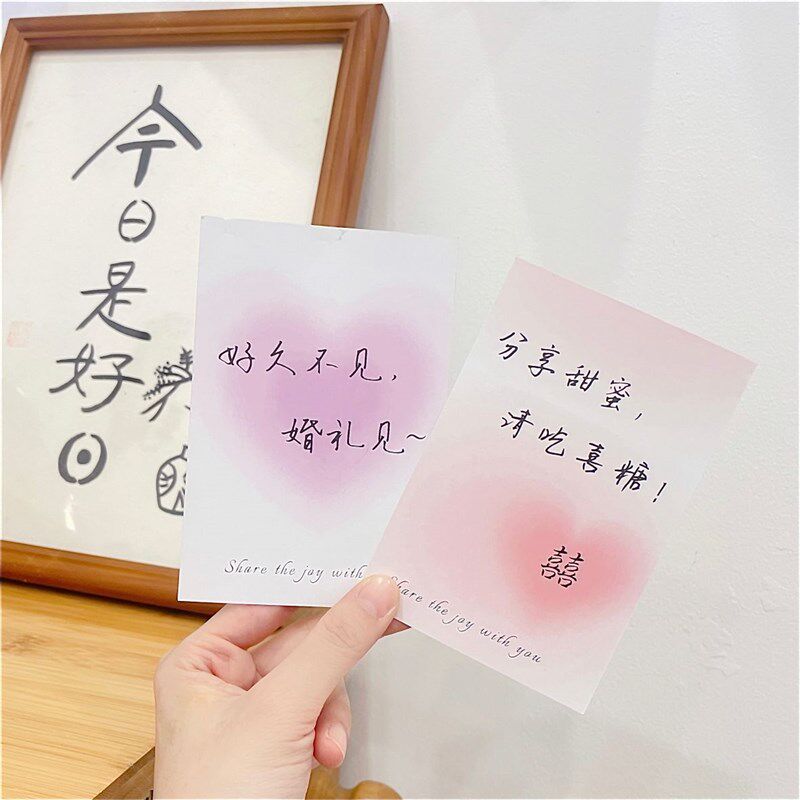 今
日
是
好
日
好久不见,
婚礼见~
Share the joy with
分享甜蜜,
请吃喜糖!
囍
Share the joy with you